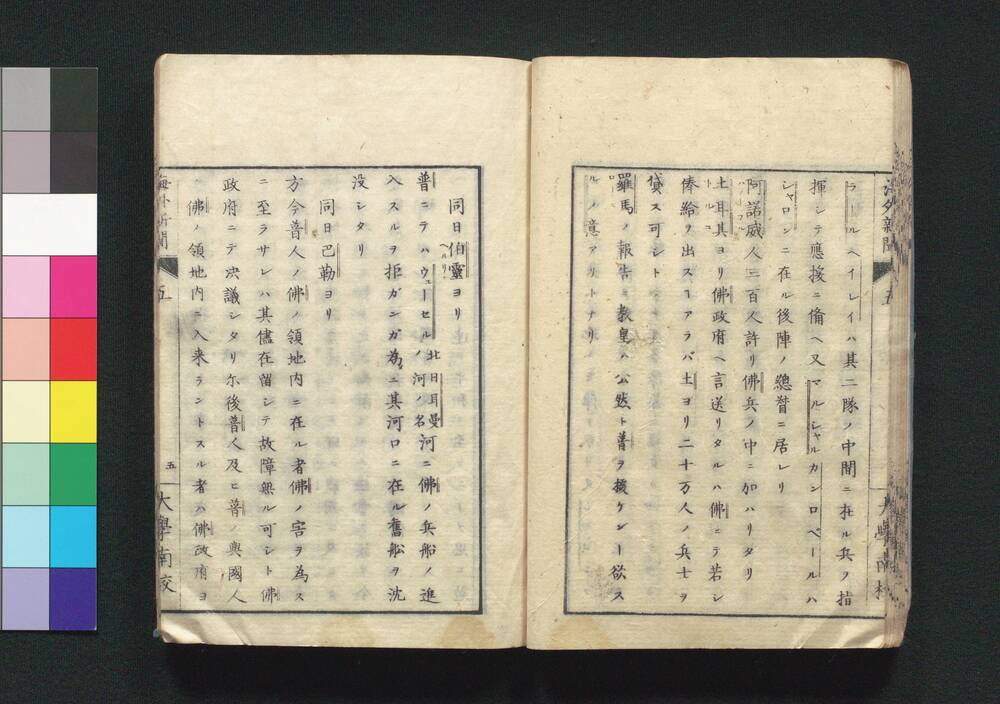 海外新聞
五
大學南校
ラールヘイレイハ其二隊ノ中間ニ在ル兵ヲ指
揮シテ應援ニ備ヘ又マルシャルカンロベールハ
シャロンニ在ル後陣ノ總督ニ居レリ
阿諾威人三百人許リ佛兵ノ中ニ加ハリタリ
土耳其ヨリ佛政府ヘ言送リタルハ佛ニテ若シ
俸給ヲ出スヿアラバ土ヨリ二十万人ノ兵士ヲ
貸ス可シト
羅馬ノ報告ニ教皇ハ公然ト普ヲ援ケンヿ欲ス
ルノ意アリトナリ
同日伯靈ヨリ
普ニテハウェーセルノ河北日耳曼河ノ名ニ佛ノ兵船ノ進
入スルヲ拒ガンガ為ニ其河口ニ在ル舊船ヲ沈
没シタリ
同日巴勒ヨリ
方今普人ノ佛ノ領地内ニ在ル者佛ノ害ヲ為ス
ニ至ラサレハ其儘在留シテ故障無ル可シト佛
政府ニテ决議シタリ尓後普人及ヒ普ノ與國人
佛ノ領地内ニ入来ラントスル者ハ佛政府ヨ
海外新聞
五
五
大學南校